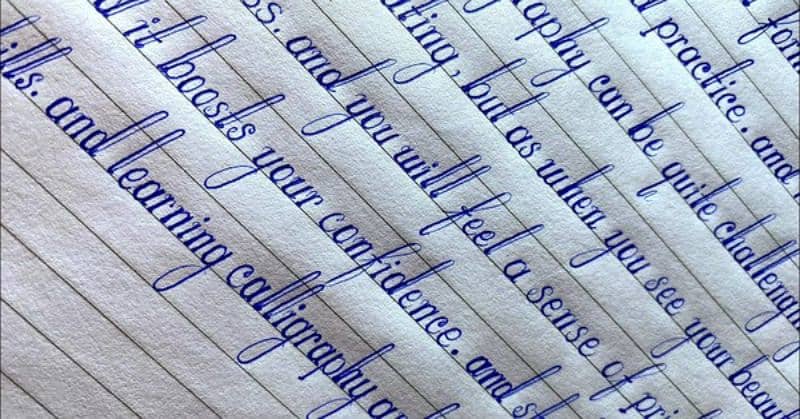 form
practice. and
raphy can be quite challengin
ating, but as when you see your beaut
ss. and you will feel a sense of pri
d it boosts your confidence. and st
ills. and learning calligraphy a